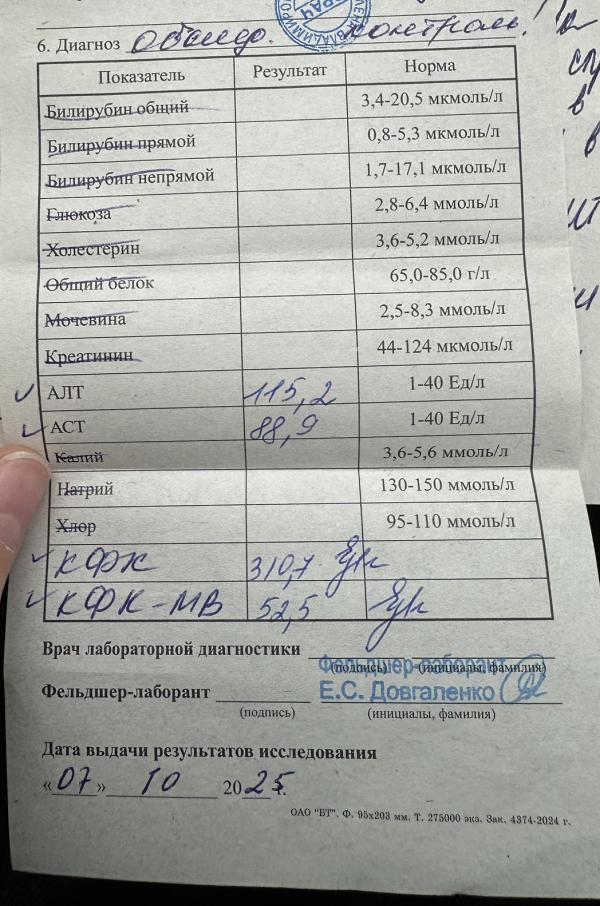 ЕЛЕНА ВЛАДИМИРО
ВРАЧ
6. Диагноз контроль!
Показатель Результат Норма
Билирубин общий 3,4-20,5 мкмоль/л
Билирубин прямой 0,8-5,3 мкмоль/л
Билирубин непрямой 1,7-17,1 мкмоль/л
Глюкоза 2,8-6,4 ммоль/л
Холестерин 3,6-5,2 ммоль/л
Общий белок 65,0-85,0 г/л
Мочевина 2,5-8,3 ммоль/л
Креатинин 44-124 мкмоль/л
АЛТ 115,2 1-40 Ед/л
АСТ 88,9 1-40 Ед/л
Калий 3,6-5,6 ммоль/л
Натрий 130-150 ммоль/л
Хлор 95-110 ммоль/л
КФК 310,7 Ед/л
КФК-МВ 52,5 Ед/л
Врач лабораторной диагностики
(подпись) (инициалы, фамилия)
Фельдшер-лаборант
Е.С. Довгаленко
Фельдшер-лаборант
(подпись) (инициалы, фамилия)
Дата выдачи результатов исследования
«07» 10 2025 г.
ОАО "БТ". Ф. 95х203 мм. Т. 275000 экз. Зак. 4374-2024 г.